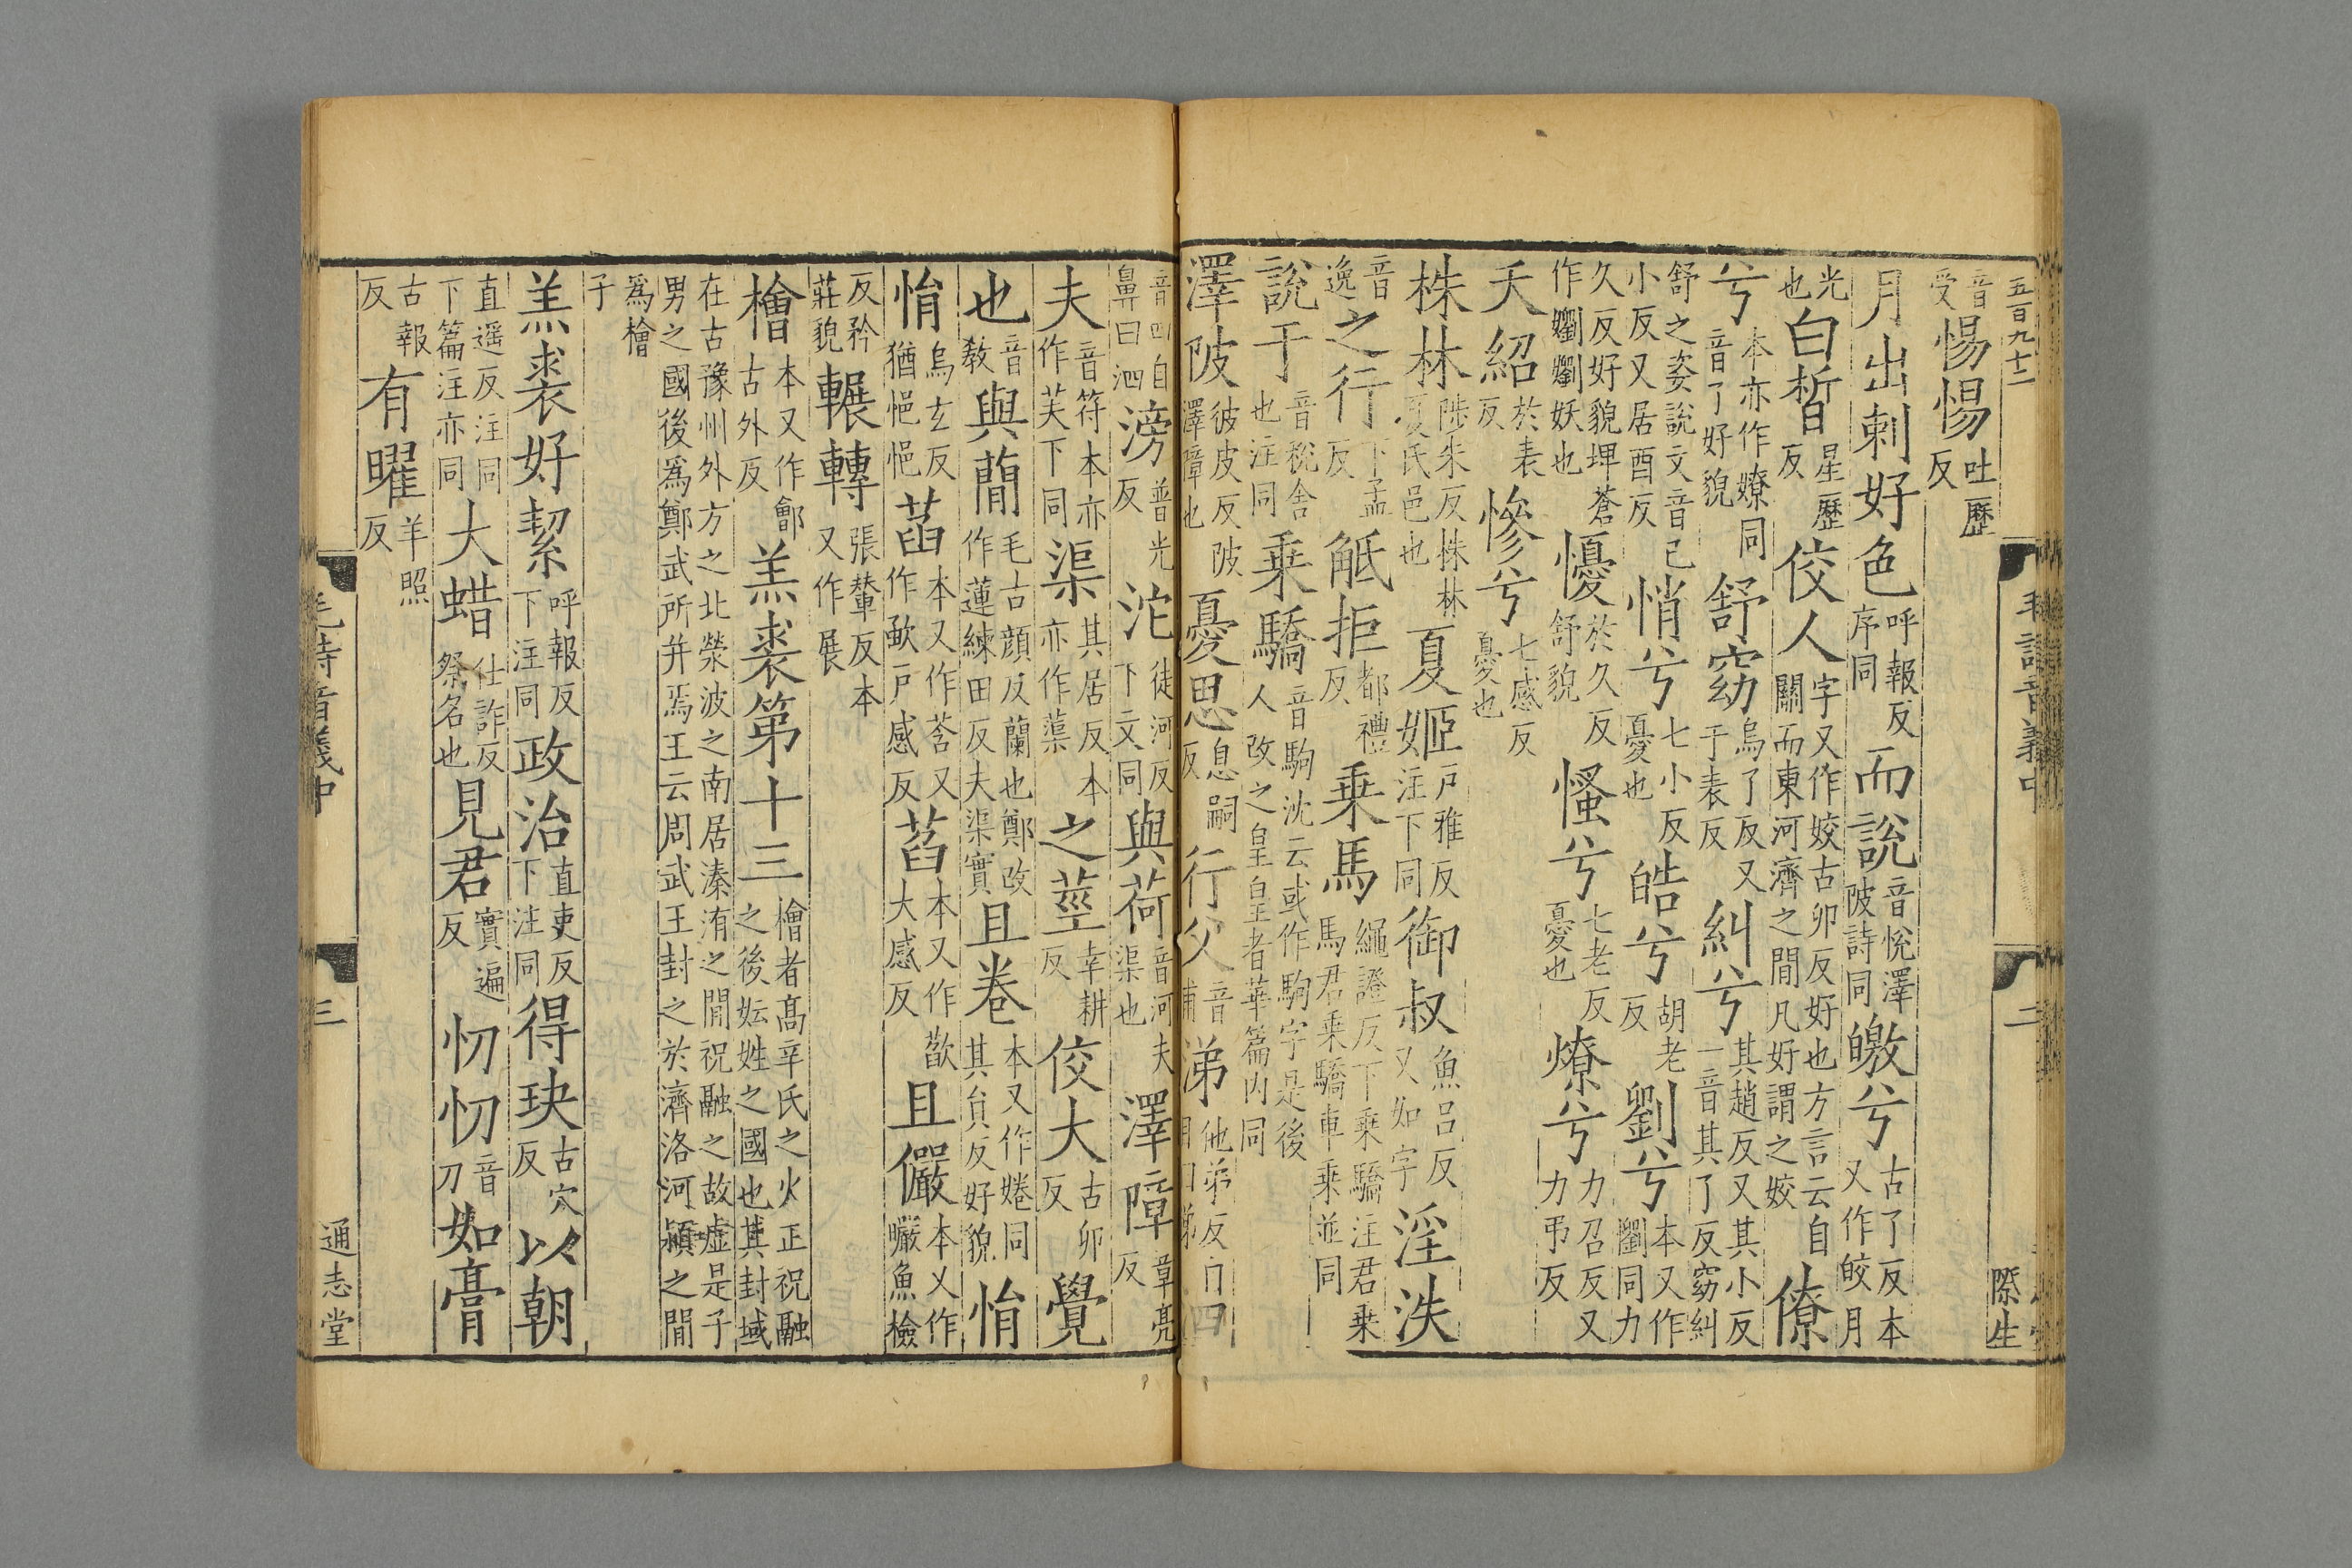 五百九十二
毛詩音義中
二
際生
音受惕惕吐歷反
月出刺好色呼報反序同而說音悅澤陂詩同皦兮古了反本又作皎月
光也白晳星歷反佼人字又作姣古卯反好也方言云自關而東河濟之閒凡好謂之姣僚
兮本亦作嫽同音了好貌舒窈烏了反又于表反糾兮其趙反又其小反一音其了反窈糾
舒之姿說文音己小反又居酉反悄兮七小反憂也皓兮胡老反劉兮本又作嬼同力
久反好貌埤蒼作嬼嬼妖也懮於久反舒貌慅兮七老反憂也燎兮力召反又力弔反
夭紹於表反慘兮七感反憂也
株林陟朱反株林夏氏邑也夏姬戶雅反注下同御叔魚呂反又如字淫泆
音逸之行下孟反觝拒都禮反乗馬繩證反下乗驕注君乗馬君乗驕車乗並同
說于音稅舍也注同乗驕音駒沈云或作駒字是後人改之皇皇者華篇內同
澤陂彼皮反陂澤障也憂思息嗣反行父音甫涕他弟反
音四自鼻曰泗滂普光反沱徒河反下文同與荷音河夫渠也澤障章亮反
夫音符本亦作芙下同渠其居反本亦作蕖之莖幸耕反佼大古卯反覺
也音敎與蕳毛古顏反蘭也鄭改作蓮練田反夫渠實且卷本又作婘同其貟反好貌悁
悁烏玄反猶悒悒萏本又作莟又作歃戶感反萏本又作歚大感反且儼本又作曮魚檢
反矜莊貌輾轉張輦反本又作展
檜本又作鄶古外反羔裘第十三檜者高辛氏之火正祝融之後妘姓之國也其封域
在古豫州外方之北滎波之南居溱洧之閒祝融之故虛是子男之國後爲鄭武所并焉王云周武王封之於濟洛河潁之閒
爲檜子
羔裘好絜呼報反下注同政治直吏反下注同得玦古穴反以朝
直遥反注同下篇注亦同大蜡仕詐反祭名也見君賢遍反忉忉音刀如膏
古報反有曜羊照反
毛詩音義中
三
通志堂